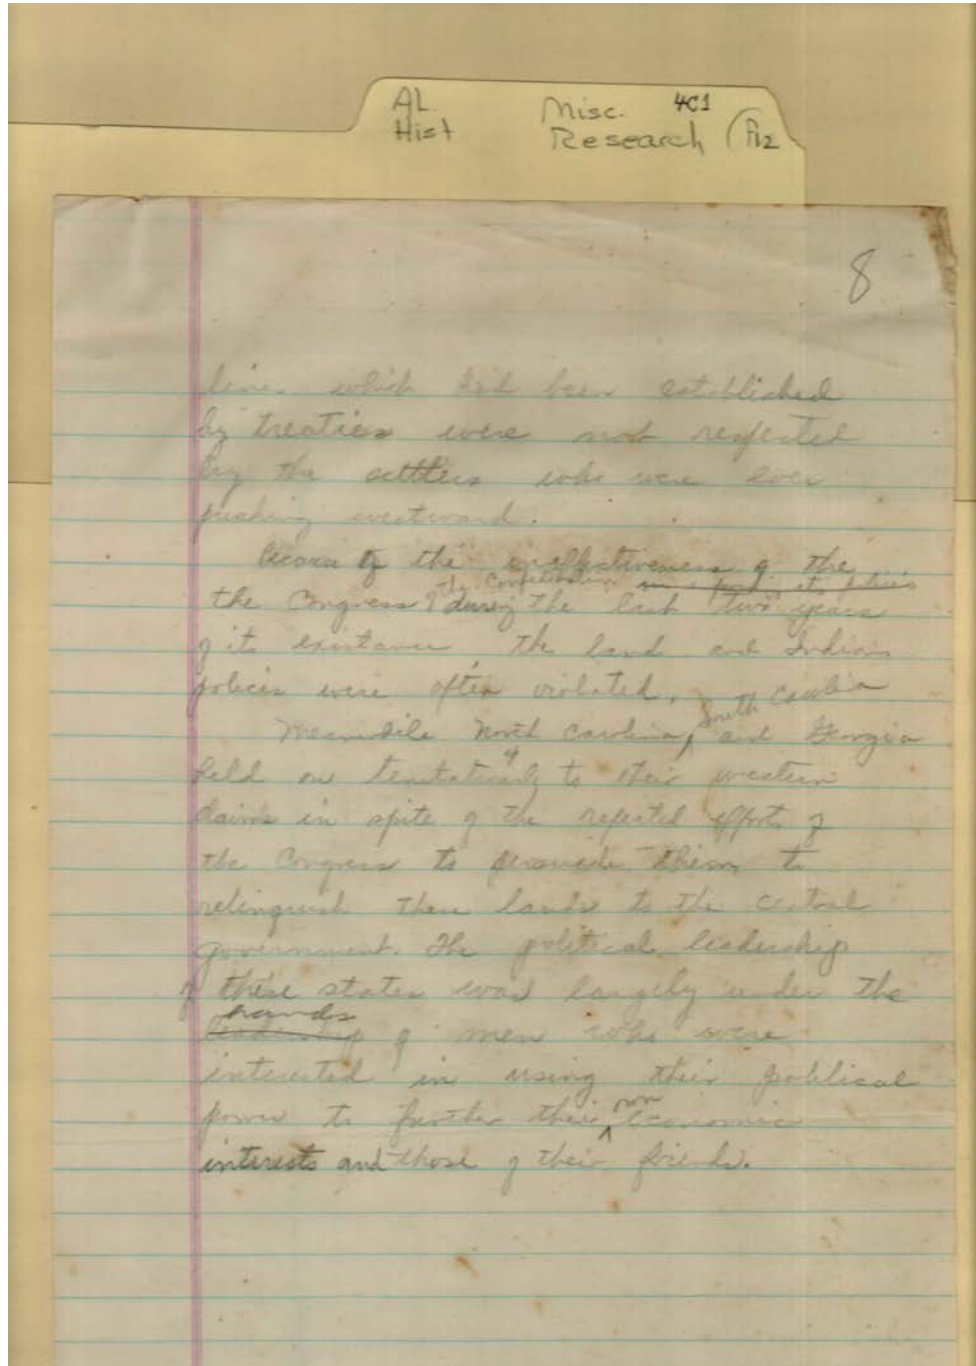 AL. Misc. 4C1
Hist Research F12
8
lines which had been established
by treaties were not respected
by the settlers who were ever
pushing westward.
Because of the ineffectiveness of the
the Congress of the Confederation during the last two years
of its existance, the land and Indian
policies were often violated.
Meanwhile North Carolina, South Carolina and Georgia
held on to their western
claims in spite of the repeated efforts of
the Congress to persuade them to
relinquish these lands to the central
government. The political leadership
of these states was largely under the
hands of men who were
interested in using their political
power to further their own economic
interests and those of their friends.